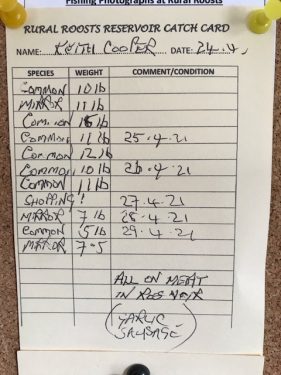 Fishing Photographs at Rural Roosts
RURAL ROOSTS RESERVOIR CATCH CARD
NAME: KEITH COOPER DATE: 24.4.
SPECIES WEIGHT COMMENT/CONDITION
COMMON 10 lb
MIRROR 11 lb
COMMON 15 lb
COMMON 11 lb 25.4.21
COMMON 12 lb
COMMON 10 lb 26.4.21
COMMON 11 lb
SHOPPING! 27.4.21
MIRROR 7 lb 28.4.21
COMMON 5 lb 29.4.21
MIRROR 7.5
ALL ON MEAT
IN
(GARLIC
SAUSAGE)